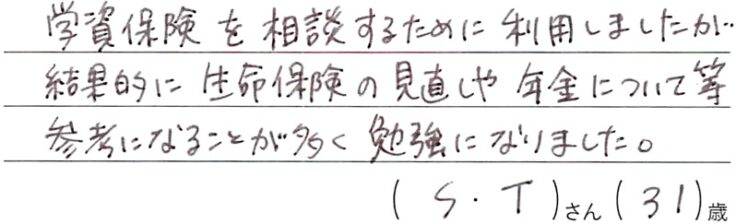 学資保険を相談するために利用しましたが
結果的に生命保険の見直しや年金について等
参考になることが多く勉強になりました。
(S・T)さん(31)歳